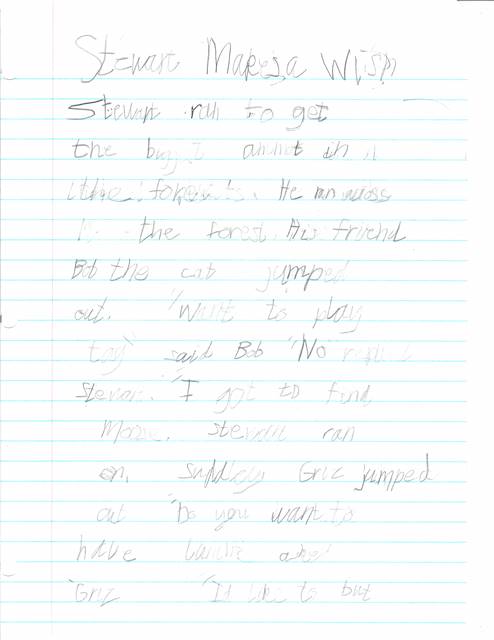 Stewart Makes a Wish
Stewart ran to get
the in
the forest. He ran across
the forest. His friend
Bob the cab jumped
out. "Want to play
tag" said Bob "No
Stewart. "I got to find
Moose. Stewart ran
on. Griz jumped
out "Do you want to
have
Griz "I'd like to but